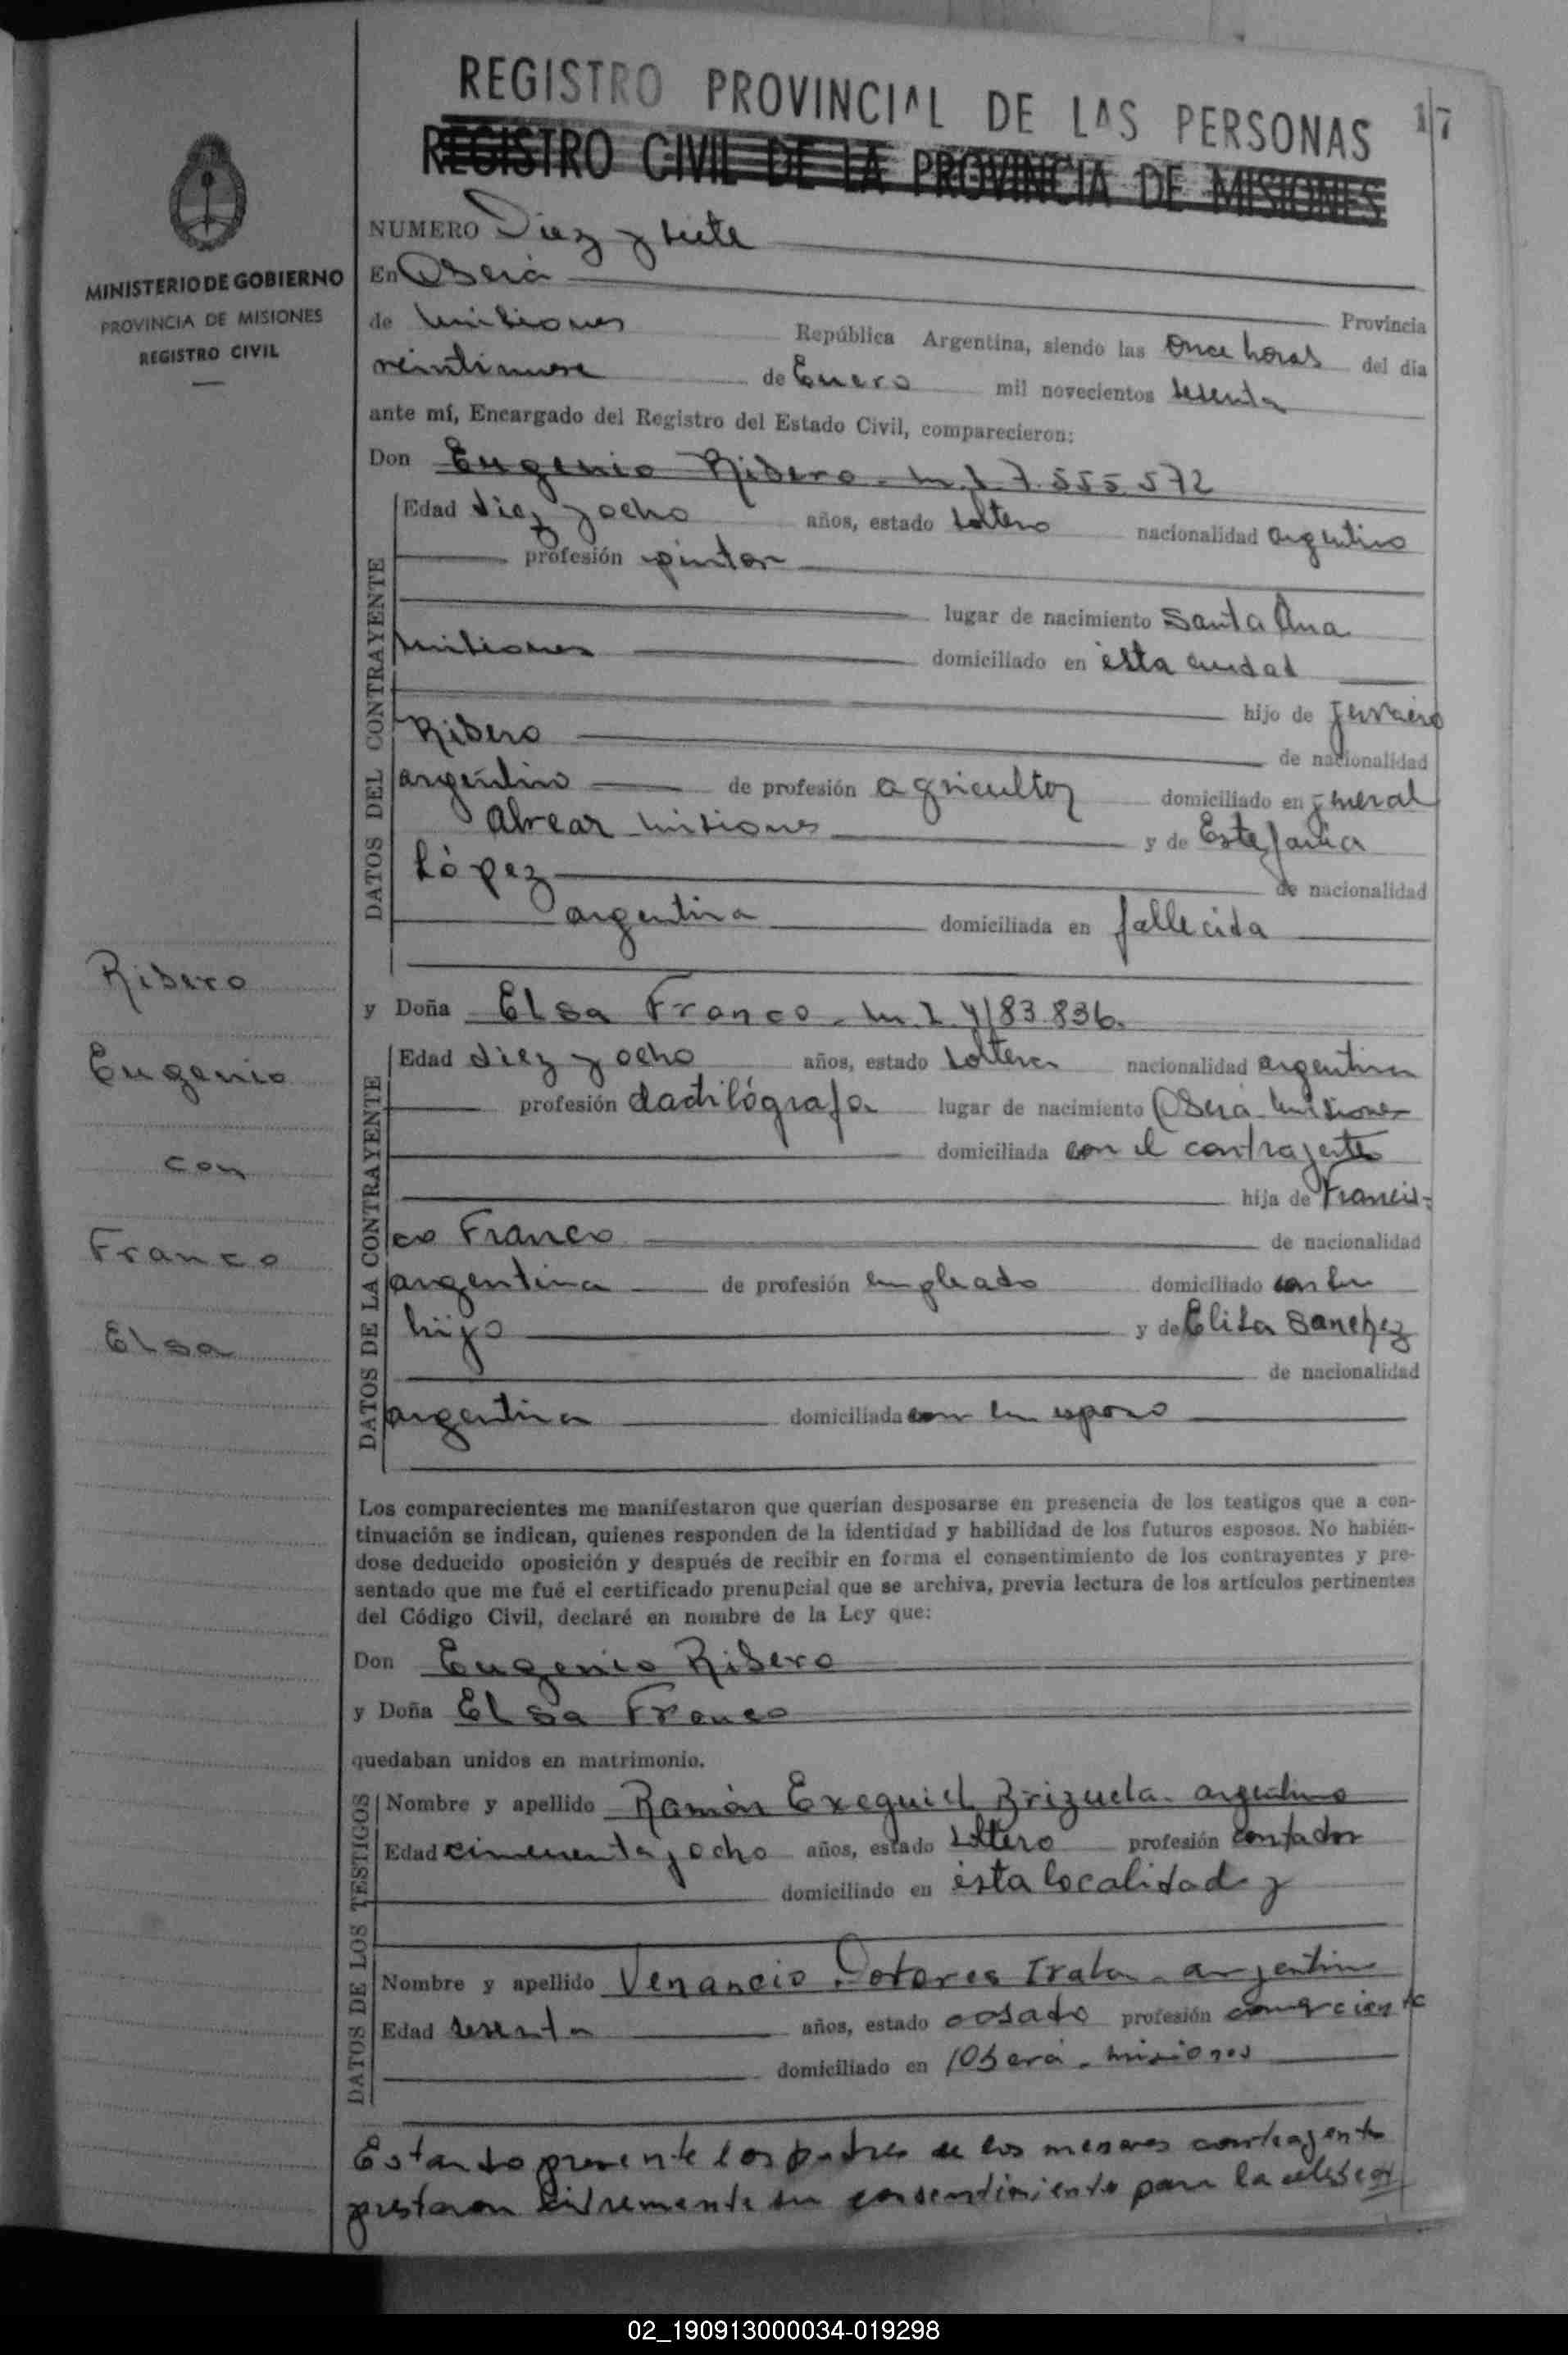 REGISTRO PROVINCIAL DE LAS PERSONAS
17
REGISTRO CIVIL DE LA PROVINCIA DE MISIONES
MINISTERIO DE GOBIERNO
PROVINCIA DE MISIONES
REGISTRO CIVIL
NUMERO Diez y siete
En Oberá
Provincia
de Misiones República Argentina, siendo las once horas del día
veintinueve de Enero mil novecientos sesenta
ante mí, Encargado del Registro del Estado Civil, comparecieron:
Don Eugenio Ribero. M.I. 7.555.572
DATOS DEL CONTRAYENTE
Edad diez y ocho años, estado soltero nacionalidad argentino
profesión pintor
lugar de nacimiento Santa Ana
Misiones domiciliado en ésta ciudad
hijo de
Ribero de nacionalidad
argentino de profesión agricultor domiciliado en general
Alvear Misiones y de Estefania
López de nacionalidad
argentina domiciliada en fallecida
y Doña Elsa Franco. M.I. 4183.836.
DATOS DE LA CONTRAYENTE
Edad diez y ocho años, estado soltera nacionalidad argentina
profesión dactilógrafa lugar de nacimiento Oberá Misiones
domiciliada con el contrayente
hija de Francis-
co Franco de nacionalidad
argentina de profesión empleado domiciliado con su
hijo y de Elisa Sanchez
de nacionalidad
argentina domiciliada con su esposo
Ribero
Eugenio
con
Franco
Elsa
Los comparecientes me manifestaron que querían desposarse en presencia de los testigos que a con-
tinuación se indican, quienes responden de la identidad y habilidad de los futuros esposos. No habién-
dose deducido oposición y después de recibir en forma el consentimiento de los contrayentes y pre-
sentado que me fué el certificado prenupcial que se archiva, previa lectura de los artículos pertinentes
del Código Civil, declaré en nombre de la Ley que:
Don Eugenio Ribero
y Doña Elsa Franco
quedaban unidos en matrimonio.
DATOS DE LOS TESTIGOS
Nombre y apellido Ramón Exequiel Brizuela. argentino
Edad cincuenta y ocho años, estado soltero profesión contador
domiciliado en ésta localidad y
Nombre y apellido Venancio Dolores Irala. argentino
Edad sesenta años, estado casado profesión comerciante
domiciliado en Oberá. Misiones
Estando presente los padres de los menores contrayente
prestaron libremente su consentimiento para la
02_190913000034-019298